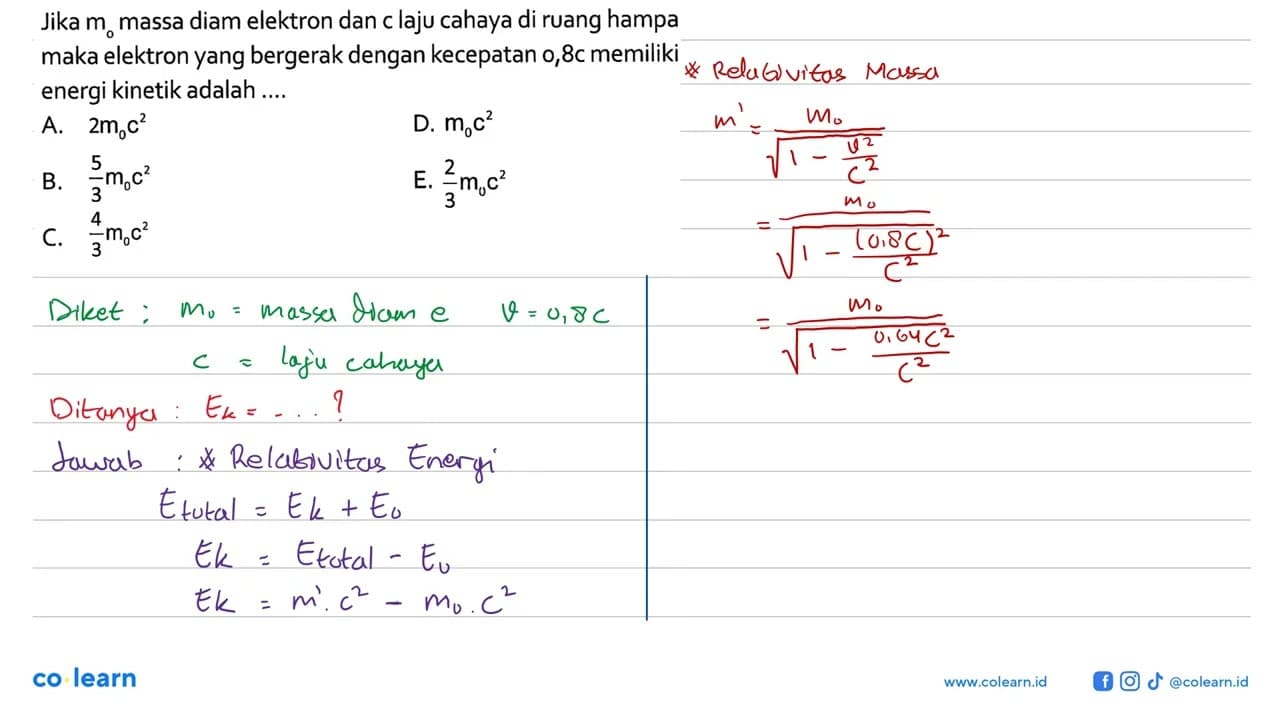 Jika m₀ massa diam elektron dan c laju cahaya di ruang hampa
maka elektron yang bergerak dengan kecepatan 0,8c memiliki
energi kinetik adalah ....
A. 2m₀c²
B. 5/3 m₀c²
C. 4/3 m₀c²
D. m₀c²
E. 2/3 m₀c²
Diket : m₀ = massa diam e v = 0,8c
c = laju cahaya
Ditanya : Ek = - ... ?
Jawab : * Relativitas Energi
Etotal = Ek + E₀
Ek = Etotal - E₀
Ek = m'. c² - m₀. c²
* Relativitas Massa
m' = m₀ / √(1 - v²/c²)
= m₀ / √(1 - (0,8c)²/c²)
= m₀ / √(1 - 0,64c²/c²)
co learn
www.colearn.id
@colearn.id